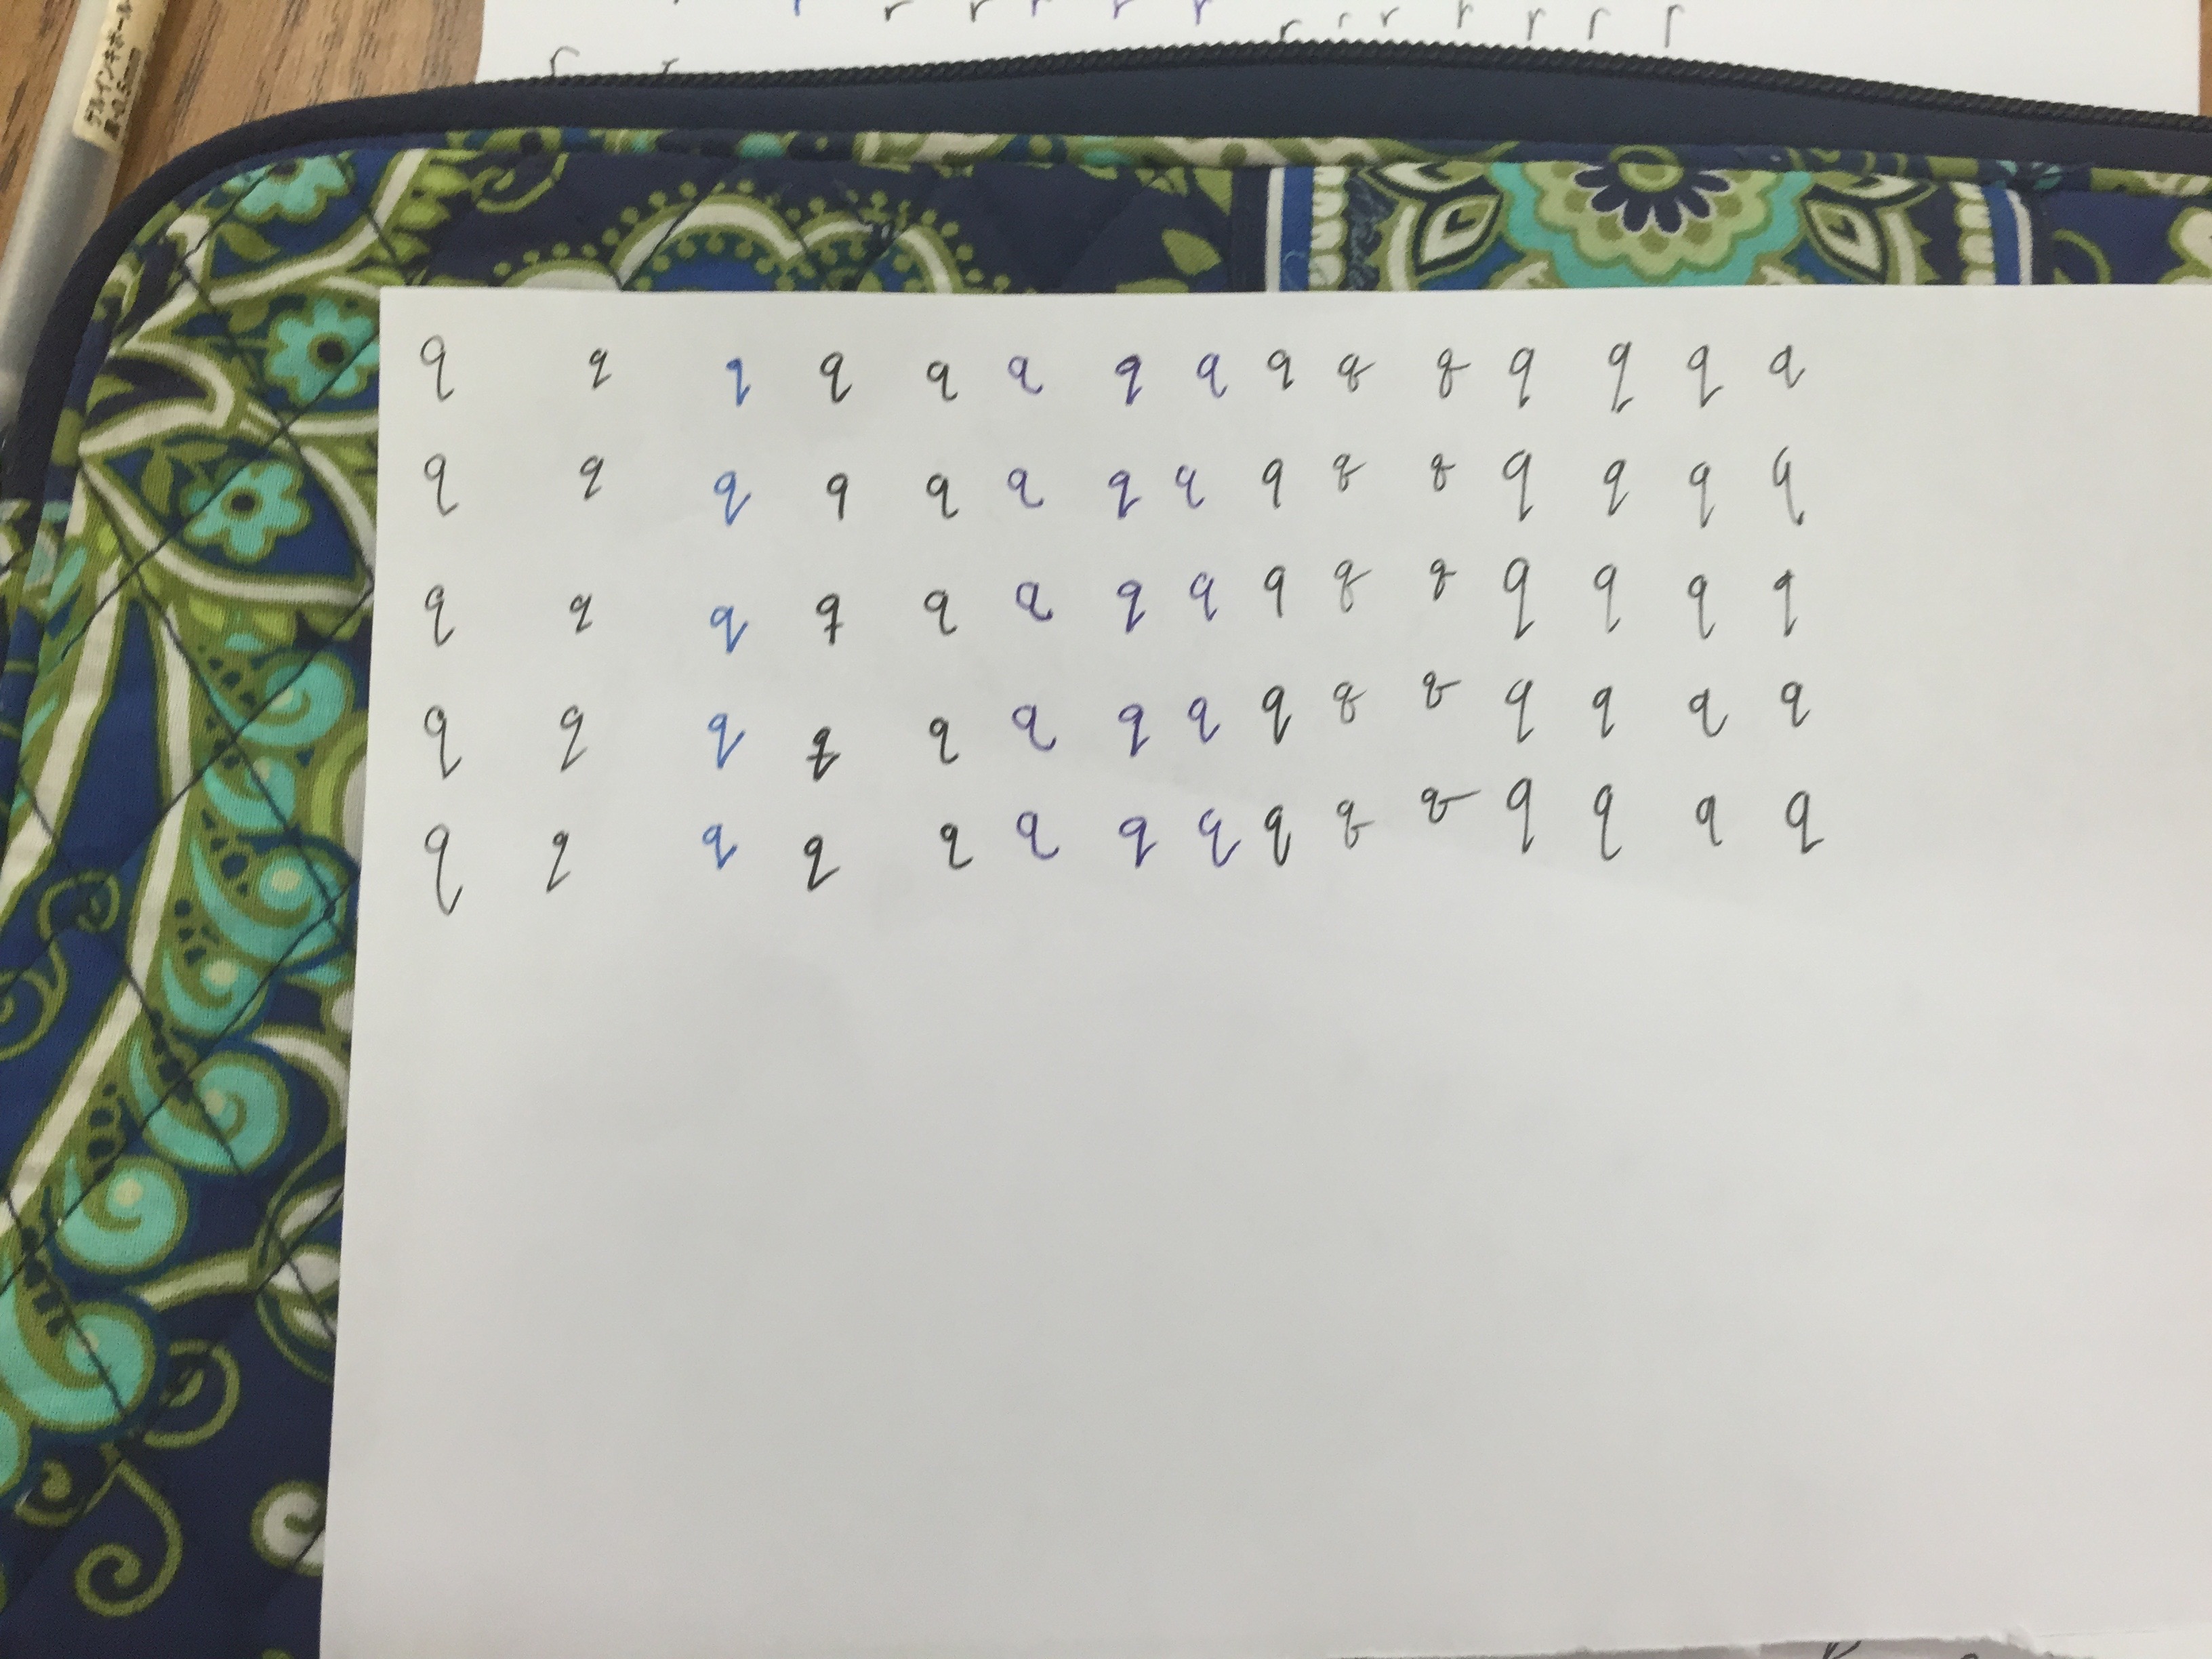 r r r r r r r r r r r r
r r
q q q q q q q q q q q q q q q
q q q q q q q q q q q q q q q
q q q q q q q q q q q q q q q
q q q q q q q q q q q q q q q
q q q q q q q q q q q q q q q